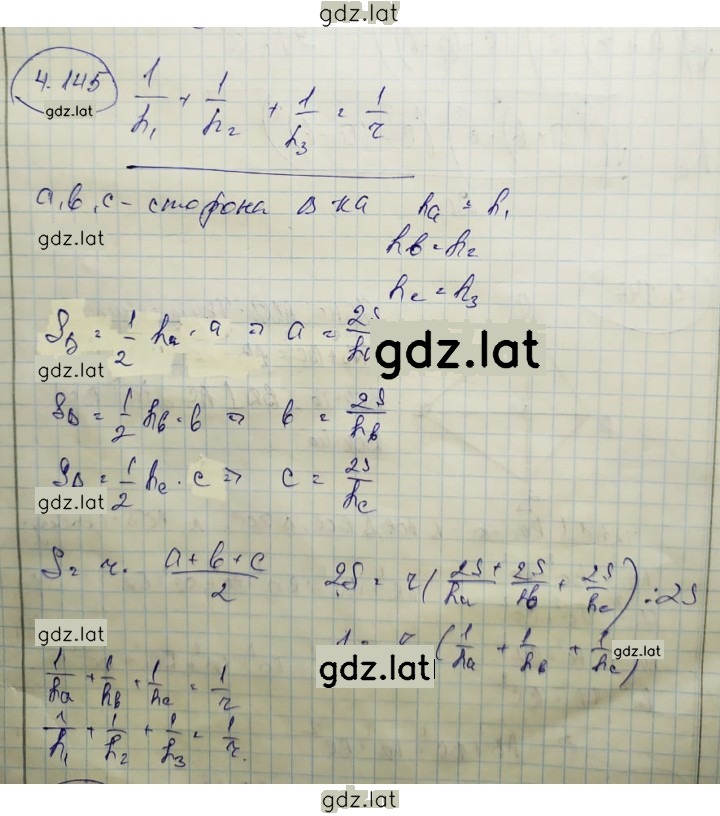 gdz.lat
4.145 1/h₁ + 1/h₂ + 1/h₃ = 1/r
gdz.lat
a, b, c - сторона Δ ка hₐ = h₁
gdz.lat
h_b = h₂
h_c = h₃
S_Δ = 1/2 hₐ · a ⇒ a = 2S/h
gdz.lat
gdz.lat
S_Δ = 1/2 h_b · b ⇒ b = 2S/h_b
S_Δ = 1/2 h_c · c ⇒ c = 2S/h_c
gdz.lat
S = r · (a + b + c)/2 2S = r (2S/hₐ + 2S/h_b + 2S/h_c) : 2S
gdz.lat
1 = r (1/hₐ + 1/h_b + 1/h_c)
gdz.lat
gdz.lat
1/hₐ + 1/h_b + 1/h_c = 1/r
1/h₁ + 1/h₂ + 1/h₃ = 1/r.
gdz.lat
gdz.lat